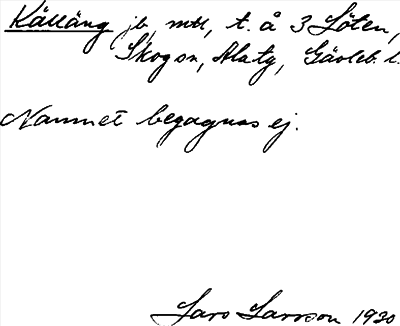 Källäng jb, mtl, t. å 3 Löten,
Skogon, Alsta, Gävleb. l.
Namnet begagnas ej.
Lars Larsson 1930